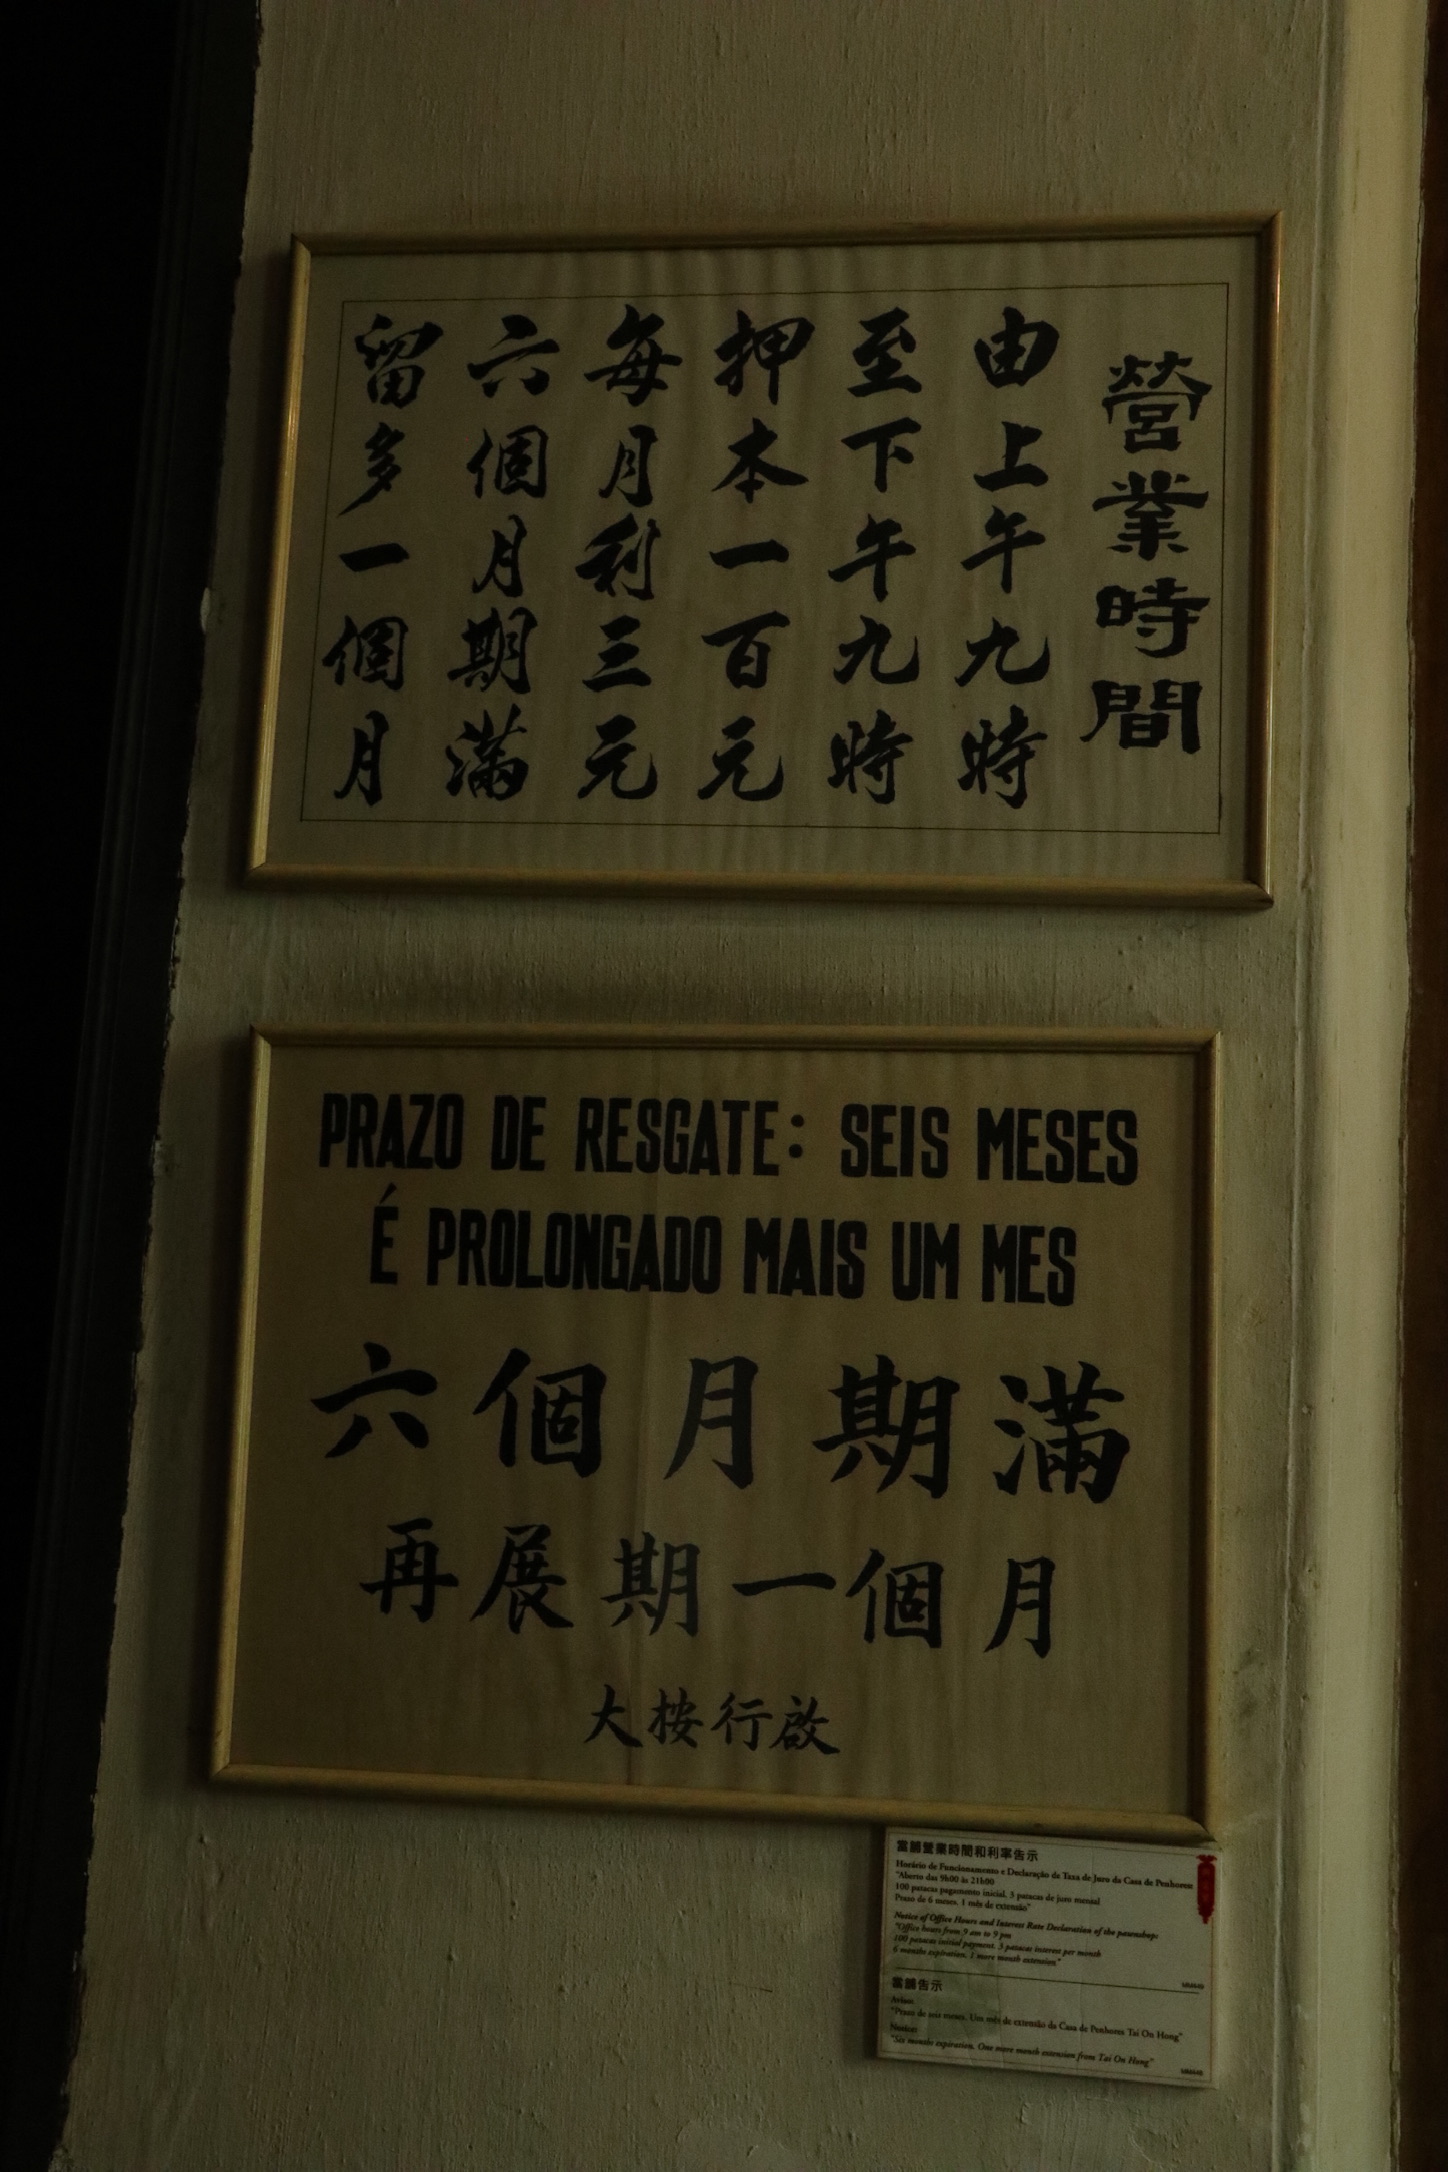 營業時間
由上午九時
至下午九時
押本一百元
每月利三元
六個月期滿
留多一個月
PRAZO DE RESGATE: SEIS MESES
É PROLONGADO MAIS UM MES
六個月期滿
再展期一個月
大按行啟
當舖營業時間和利率告示
Horário de Funcionamento e Declaração da Taxa de Juro da Casa de Penhores
"Aberto das 9h00 às 21h00
100 patacas pagamento inicial. 3 patacas de juro mensal
Prazo de 6 meses. 1 mês de extensão"
Notice of Office Hours and Interest Rate Declaration of the pawnshop:
"Office hours from 9 am to 9 pm
100 patacas initial payment. 3 patacas interest per month
6 months expiration. 1 more month extension"
當舖告示
Aviso:
"Prazo de seis meses. Um mês de extensão da Casa de Penhores Tai On Hong"
Notice:
"Six months expiration. One more month extension from Tai On Hong"